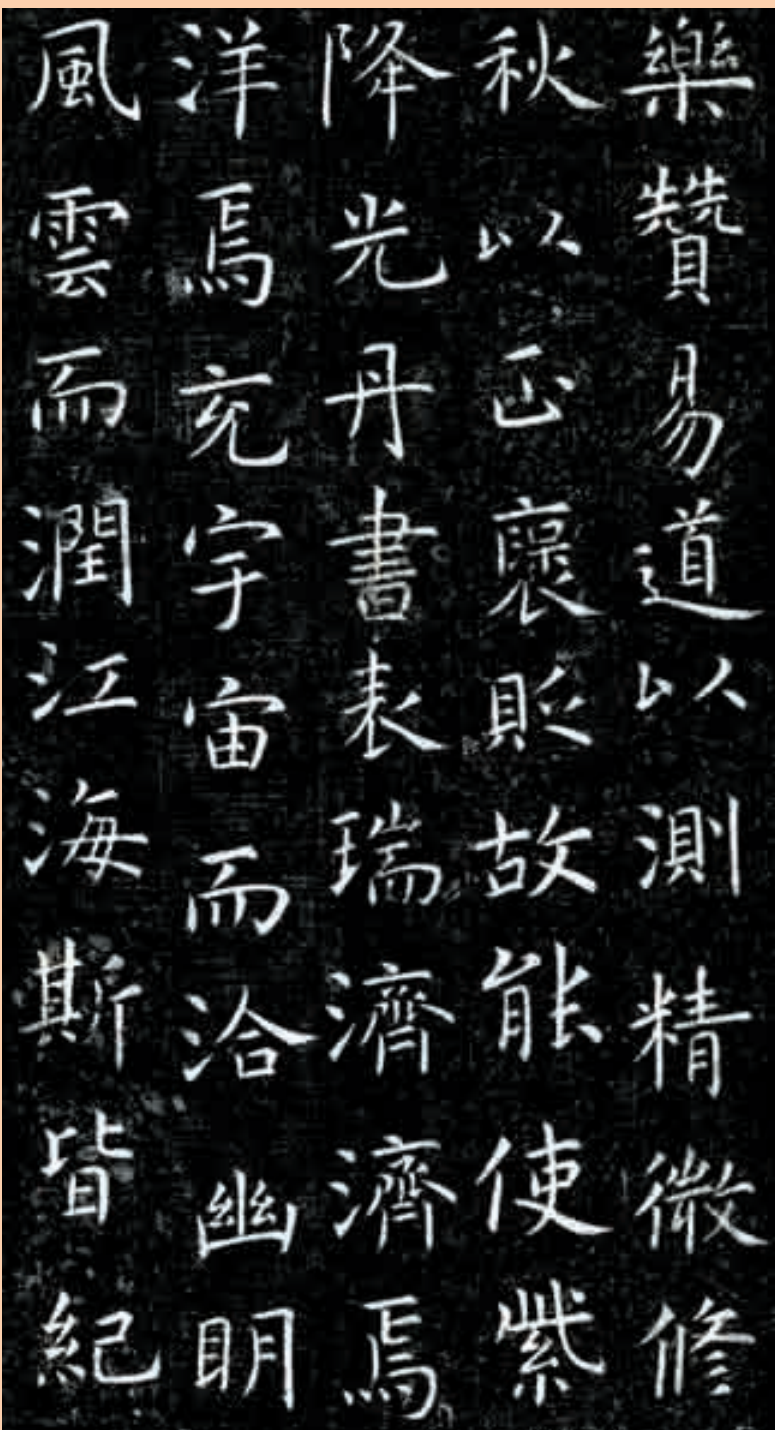 樂贊易道以測精微修
秋以正褒貶故能使紫
降光丹書表瑞濟濟焉
洋焉充宇宙而洽幽明
風雲而潤江海斯皆紀